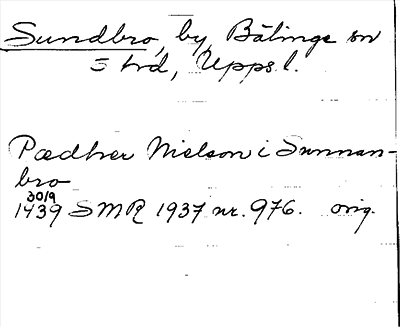 Sundbro, by, Bälinge sn
5 hrd, Upps.l.
Pædher Nielson i Sunnan-
bro
30/9
1439 SMR 1937 nr. 976. orig.